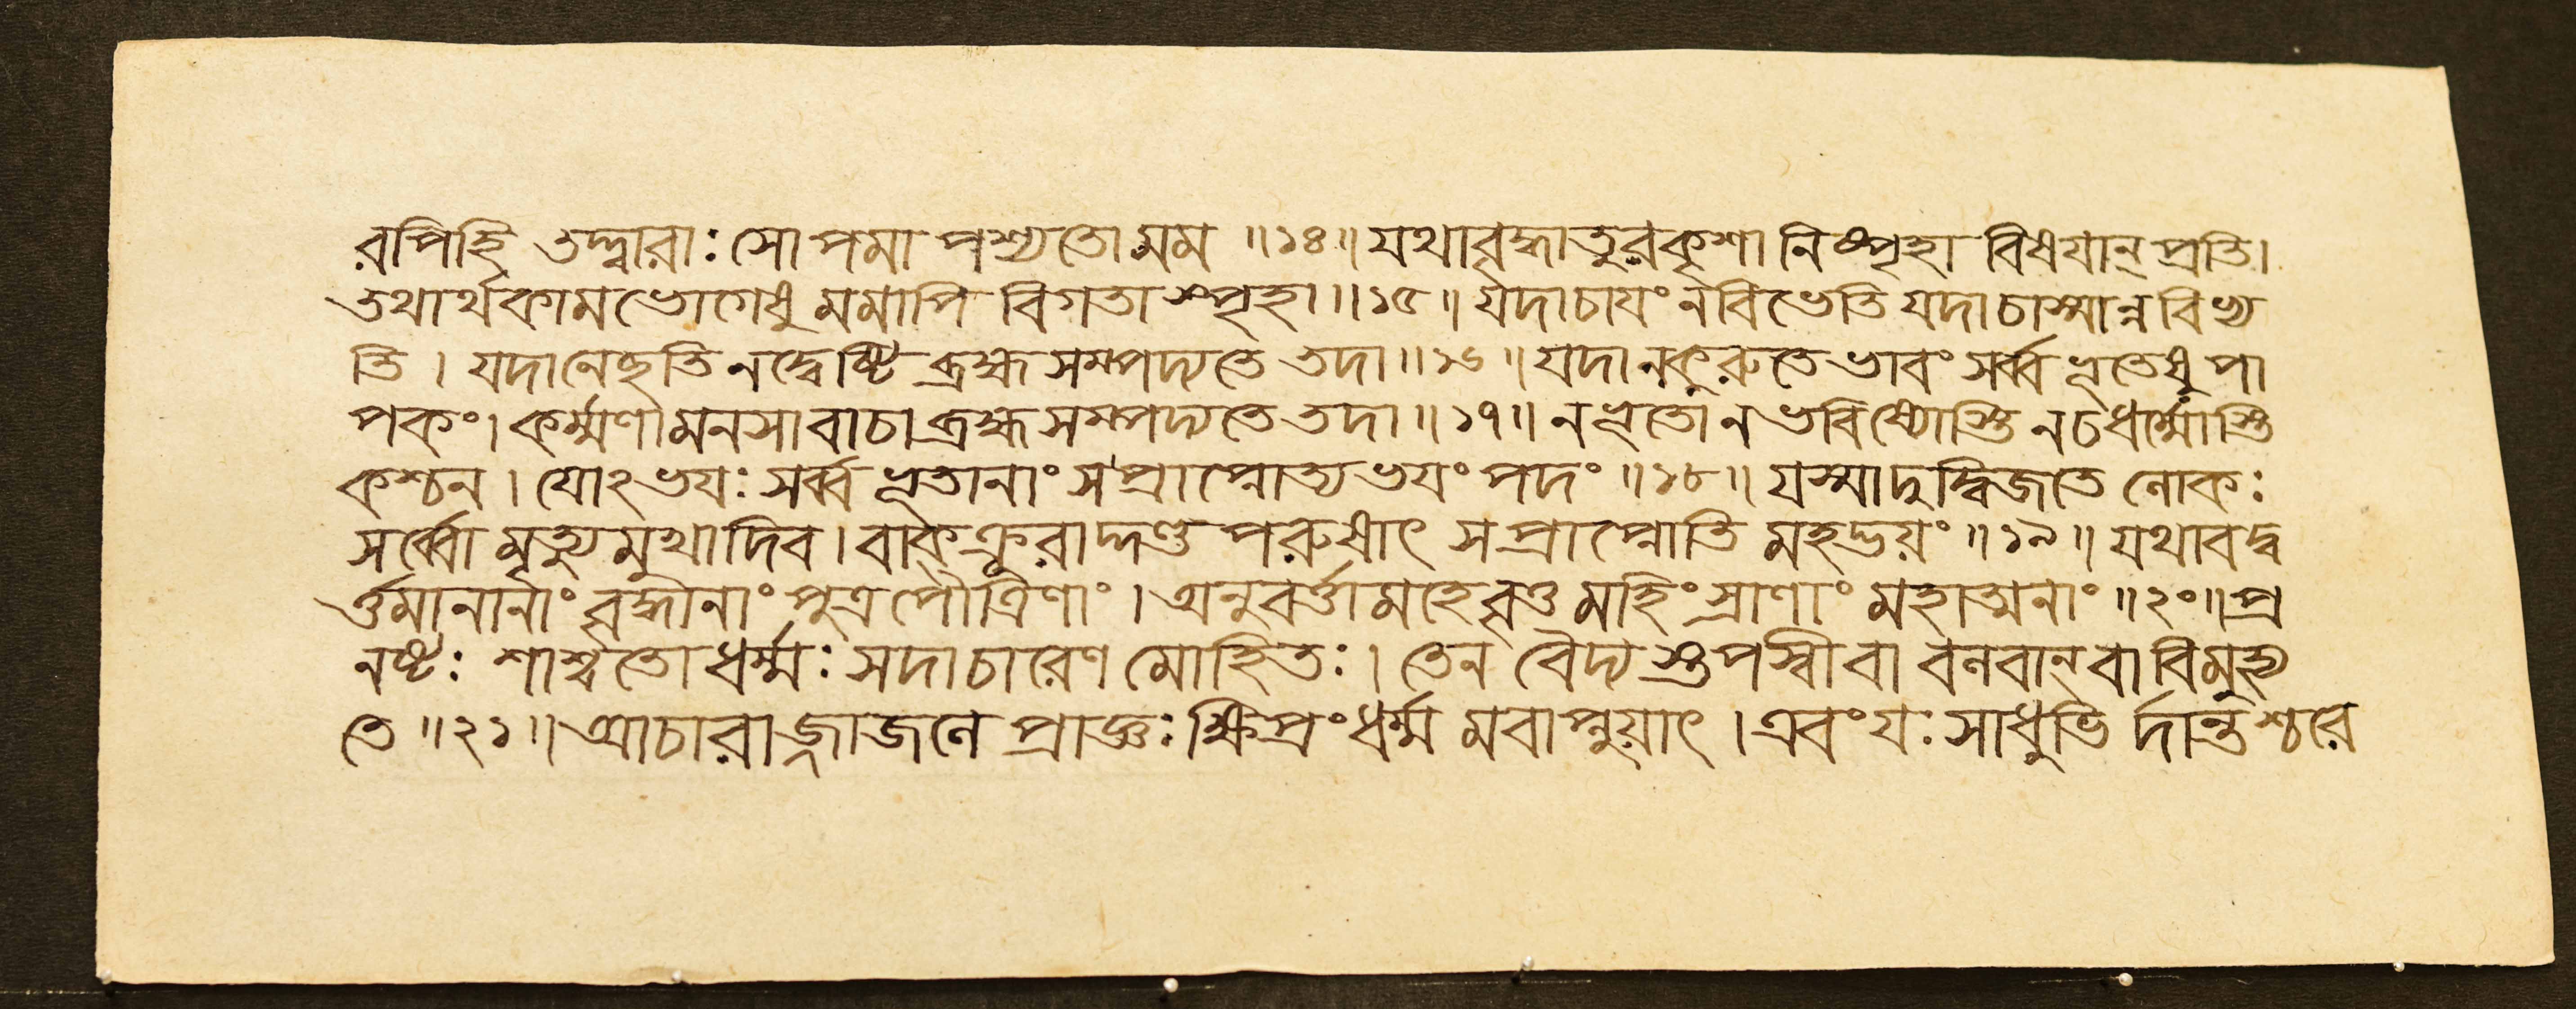 রপিহি তদ্দ্বারাঃ সোপমা পশ্যতো মম ॥১৪॥ যথাবৃদ্ধাতুরকৃশা নিষ্পৃহা বিষযান্ প্রতি।
তথার্থকামভোগেষু মমাপি বিগতা স্পৃহা॥১৫॥ যদাচাযং নবিভেতি যদাচাস্মান্নবিভ্য
তি। যদানেচ্ছতি নদ্বেষ্টি ব্রহ্মসম্পদ্যতে তদা॥১৬॥ যদানকুরুতে ভাবং সর্ব্বভূতেষু পা
পকং। কর্ম্মণা মনসা বাচা ব্রহ্মসম্পদ্যতে তদা॥১৭॥ নভূতোন ভবিষ্যোস্তি নচধর্ম্মোস্তি
কশ্চন। যোঽভযঃ সর্ব্বভূতানাং সপ্রাপ্নোত্যভযং পদং ॥১৮॥ যস্মাদুদ্বিজাতে লোকঃ
সর্ব্বো মৃত্যুমুখাদিব। বাকক্রূরাদ্দণ্ডপরুষাৎ সপ্রাপ্নোতি মহদ্ভয়ং॥১৯॥ যথাবদ্ব
র্ত্তমানানাং বৃদ্ধানাং পুত্রপৌত্রিণাং। অনুবর্ত্তামহেবৃত্তমহিংস্রাণাং মহাত্মনাং ॥২০॥ প্র
নষ্টঃ শাশ্বতোধর্ম্মঃ সদাচারেণ মোহিতঃ। তেন বৈদ্যস্তপস্বীবা বলবান্বা বিমুহ্য
তে॥২১॥ আচারাজ্জাজলে প্রাজ্ঞঃ ক্ষিপ্রং ধর্ম্মমবাপ্নুয়াৎ। এবংযঃ সাধুভির্দান্তশ্চরে